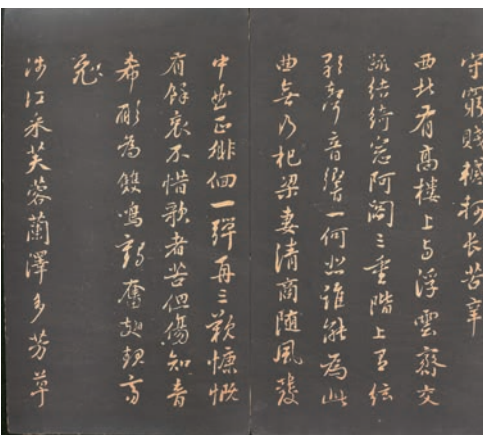 守窮賤轗軻長苦辛
西北有高樓上与浮雲齊交
疏結綺窓阿閣三重階上有絃
歌聲音響一何悲誰能為此
曲無乃杞梁妻清商随風發
中曲正徘徊一彈再三歎慷慨
有餘哀不惜歌者苦但傷知音
希願為雙鳴鶴奮翅起高
飛
涉江采芙蓉蘭澤多芳草